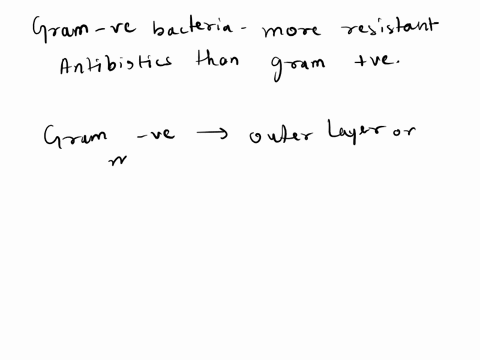 Gram -ve bacteria - more resistant
Antibiotics than gram +ve.
Gram -ve → outer layer or